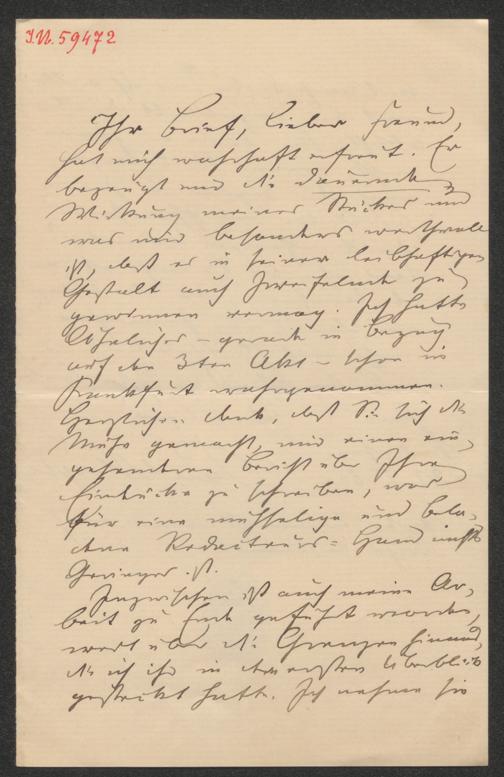 I.N. 59472
Ihr Brief, lieber Freund,
hat mich wahrhaft erfreut. Er
bezeugt mir die dauernde
Wirkung meines Stückes und
was mir besonders werthvoll
ist, daß es in seiner leibhaftigen
Gestalt auch Zweifelnde zu
gewinnen vermag. Ich hatte
Ähnliches – gerade in Bezug
auf den 3ten Akt – schon in
Frankfurt wahrgenommen.
Herzlichen Dank, daß Sie sich die
Mühe gemacht, mir einen ein-
gehenderen Bericht über Ihre
Eindrücke zu schreiben, was
für eine mühselige und bela-
dene Redacteurs-Hand nichts
Geringes ist.
Inzwischen ist auch meine Ar-
beit zu Ende geführt worden,
weit über die Grenzen hinaus,
die ich ihr in dem ersten Überblick
gesteckt hatte. Ich nehme sie